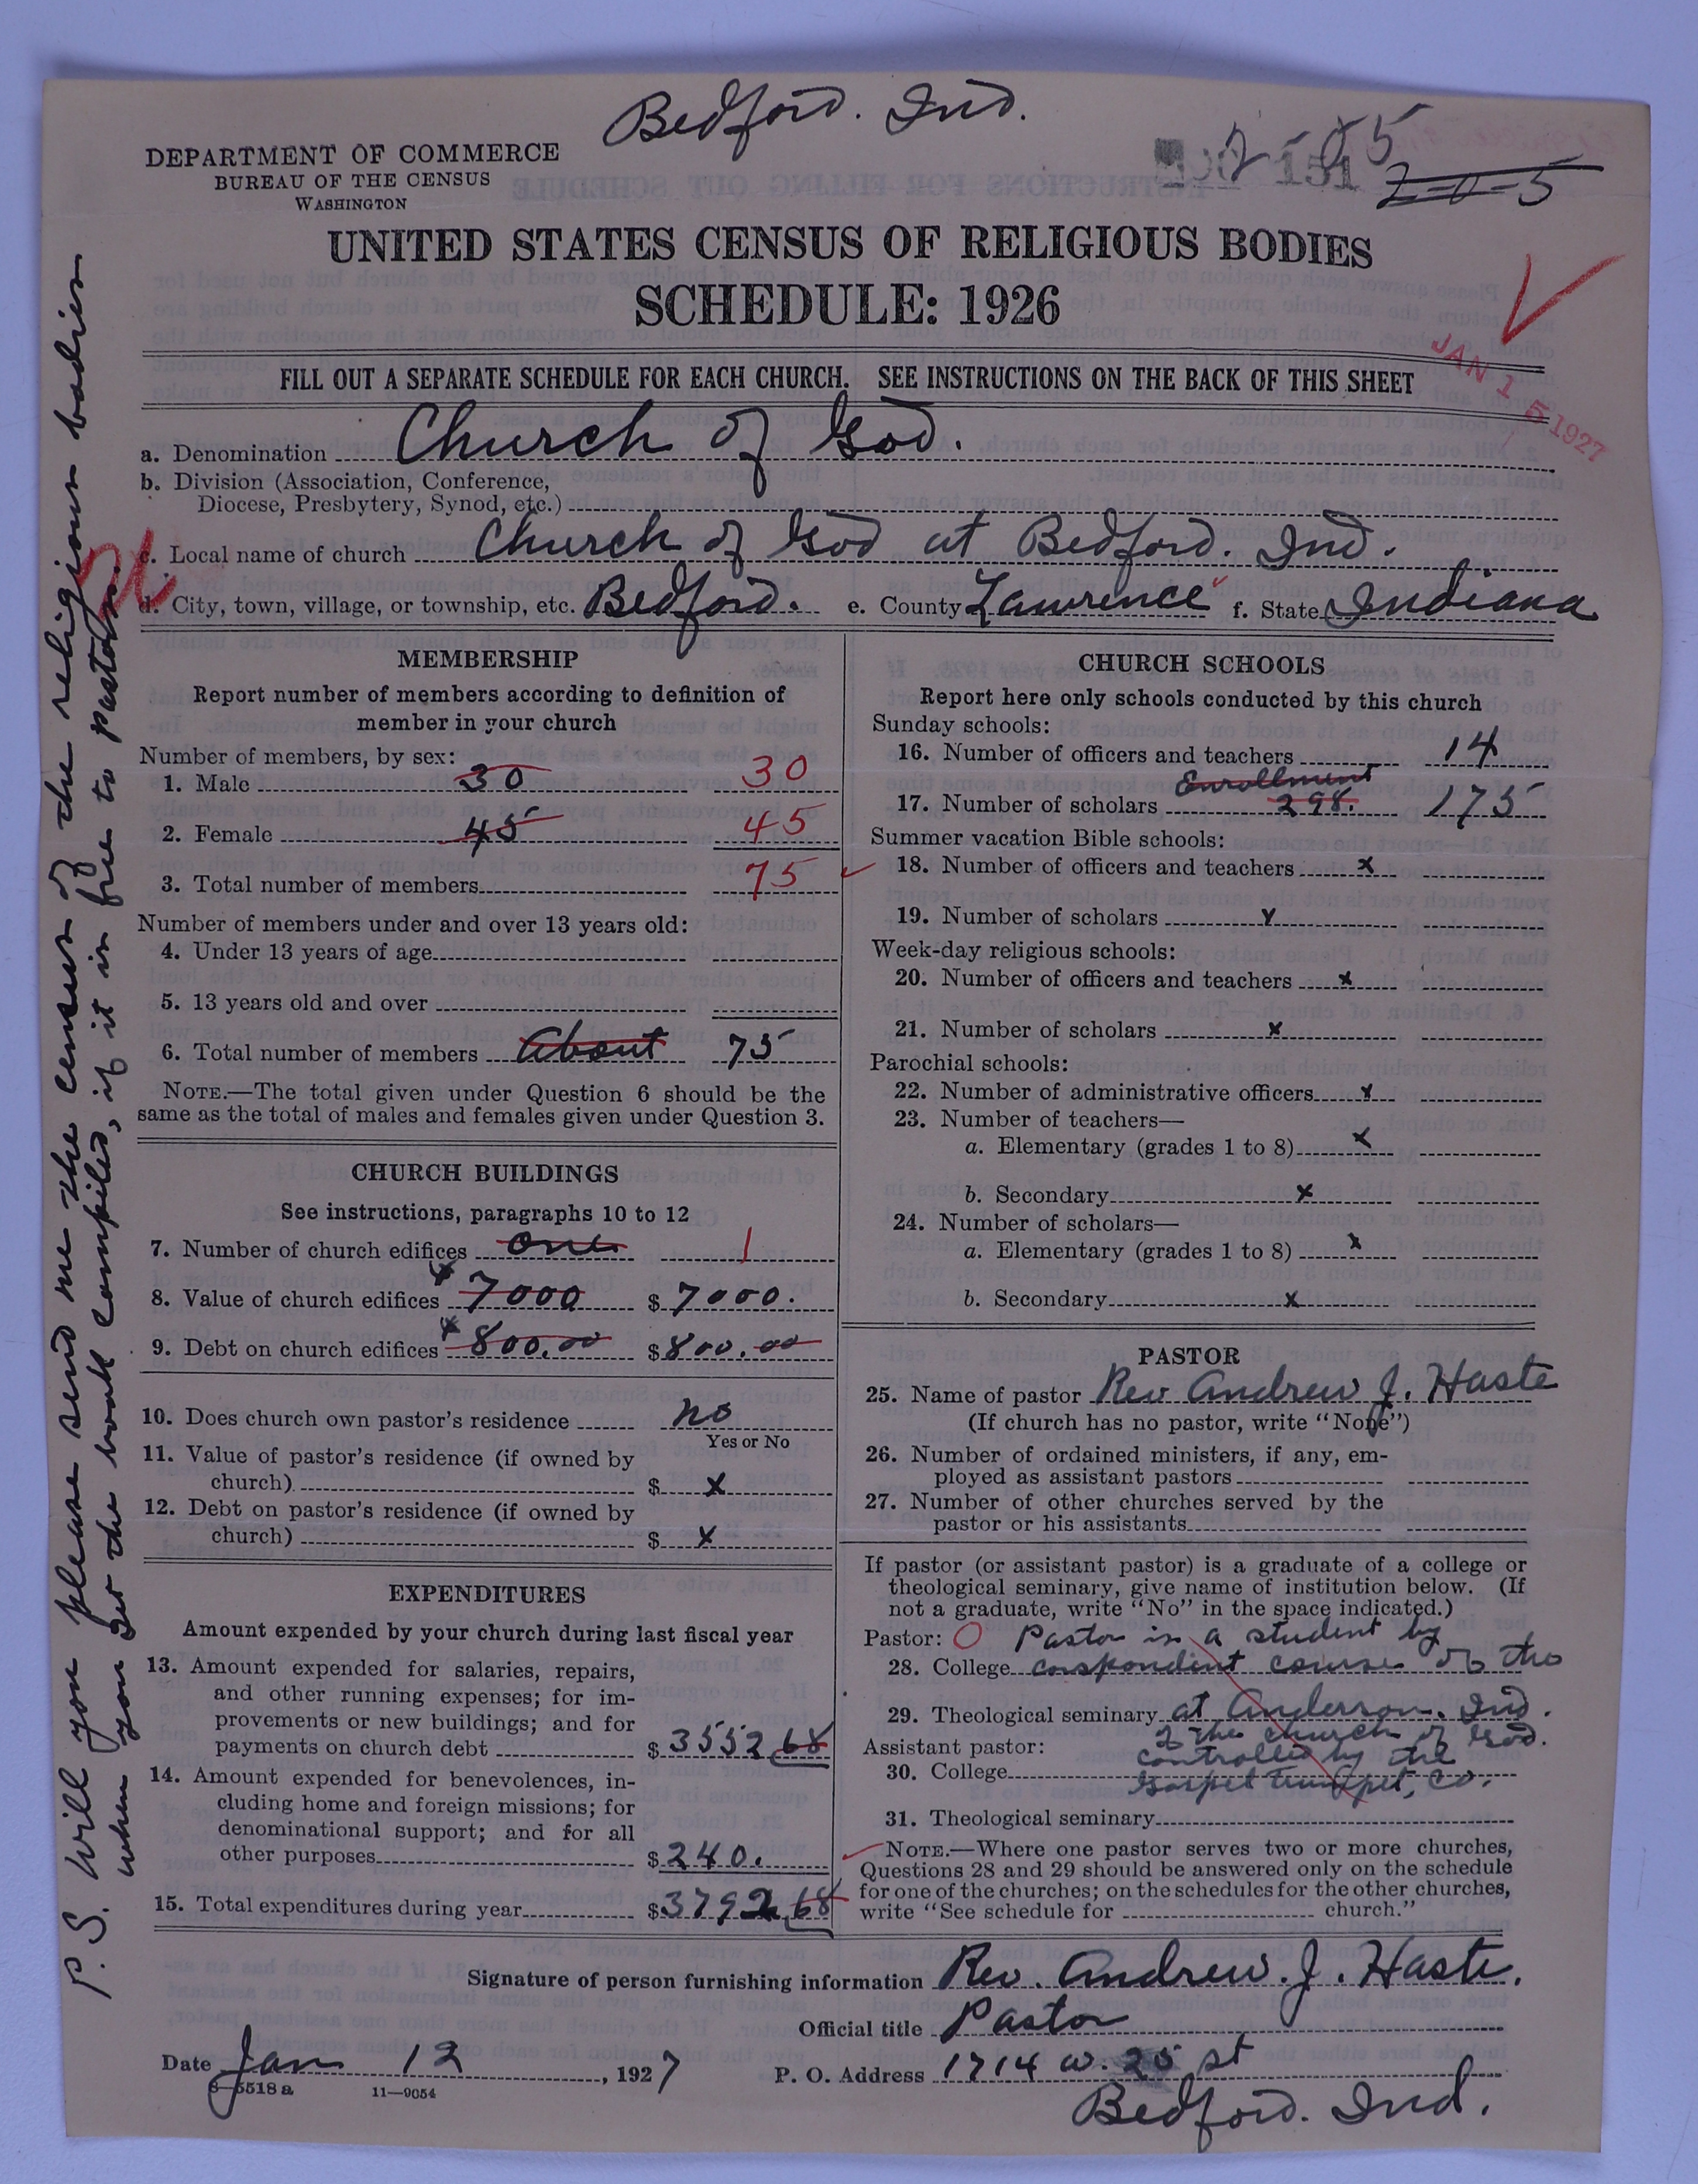 Bedford. Ind.
DEPARTMENT OF COMMERCE
BUREAU OF THE CENSUS
WASHINGTON
2-0-5
UNITED STATES CENSUS OF RELIGIOUS BODIES
SCHEDULE: 1926
JAN 15 1927
FILL OUT A SEPARATE SCHEDULE FOR EACH CHURCH. SEE INSTRUCTIONS ON THE BACK OF THIS SHEET
a. Denomination Church of God.
b. Division (Association, Conference,
Diocese, Presbytery, Synod, etc.)
c. Local name of church Church of God at Bedford. Ind.
d. City, town, village, or township, etc. Bedford. e. County Lawrence f. State Indiana
MEMBERSHIP
Report number of members according to definition of
member in your church
Number of members, by sex:
1. Male 30 30
2. Female 45 45
3. Total number of members 75
Number of members under and over 13 years old:
4. Under 13 years of age
5. 13 years old and over
6. Total number of members About 75
NOTE.—The total given under Question 6 should be the
same as the total of males and females given under Question 3.
CHURCH BUILDINGS
See instructions, paragraphs 10 to 12
7. Number of church edifices one 1
8. Value of church edifices 7000 $7000.
9. Debt on church edifices 800.00 $800.00
10. Does church own pastor's residence no
Yes or No
11. Value of pastor's residence (if owned by
church) $ x
12. Debt on pastor's residence (if owned by
church) $ x
EXPENDITURES
Amount expended by your church during last fiscal year
13. Amount expended for salaries, repairs,
and other running expenses; for im-
provements or new buildings; and for
payments on church debt $3552.68
14. Amount expended for benevolences, in-
cluding home and foreign missions; for
denominational support; and for all
other purposes $240.
15. Total expenditures during year $3792.68
CHURCH SCHOOLS
Report here only schools conducted by this church
Sunday schools:
16. Number of officers and teachers 14
Enrollment
17. Number of scholars 298. 175
Summer vacation Bible schools:
18. Number of officers and teachers x
19. Number of scholars x
Week-day religious schools:
20. Number of officers and teachers x
21. Number of scholars x
Parochial schools:
22. Number of administrative officers x
23. Number of teachers—
a. Elementary (grades 1 to 8) x
b. Secondary x
24. Number of scholars—
a. Elementary (grades 1 to 8) x
b. Secondary x
PASTOR
25. Name of pastor Rev Andrew J. Haste
(If church has no pastor, write "None")
26. Number of ordained ministers, if any, em-
ployed as assistant pastors
27. Number of other churches served by the
pastor or his assistants
If pastor (or assistant pastor) is a graduate of a college or
theological seminary, give name of institution below. (If
not a graduate, write "No" in the space indicated.)
Pastor: O Pastor is a student by
28. College corspondint course of the
29. Theological seminary at Anderson. Ind.
of the church of God.
Assistant pastor: controlled by the
30. College Gospel Trumpet, Co.
31. Theological seminary
NOTE.—Where one pastor serves two or more churches,
Questions 28 and 29 should be answered only on the schedule
for one of the churches; on the schedules for the other churches,
write "See schedule for church."
Signature of person furnishing information Rev. Andrew. J. Haste.
Official title Pastor
Date Jan 12, 1927 P. O. Address 1714 W. 25 st
8—5518 a 11—9054
Bedford. Ind.
P.S. Will you please send me the census of the religious bodies
when you get the book compiled, if it in free to pastors.